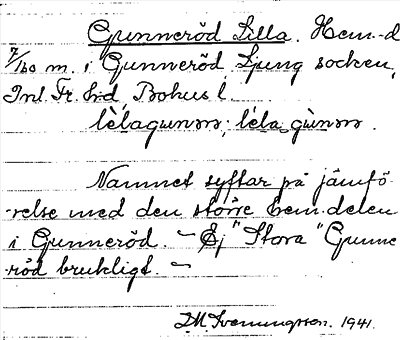 Gunneröd Lilla. Hem.-d
7/120 m. i Gunneröd Ljung socken,
Inl. Fr. hd, Bohus l.
lèlagunǝn; léla gùnǝn.
Namnet syftar på jämfö-
relse med den större hem.delen
i Gunneröd. – Ej "Stora" Gunne
röd brukligt. –
1941.